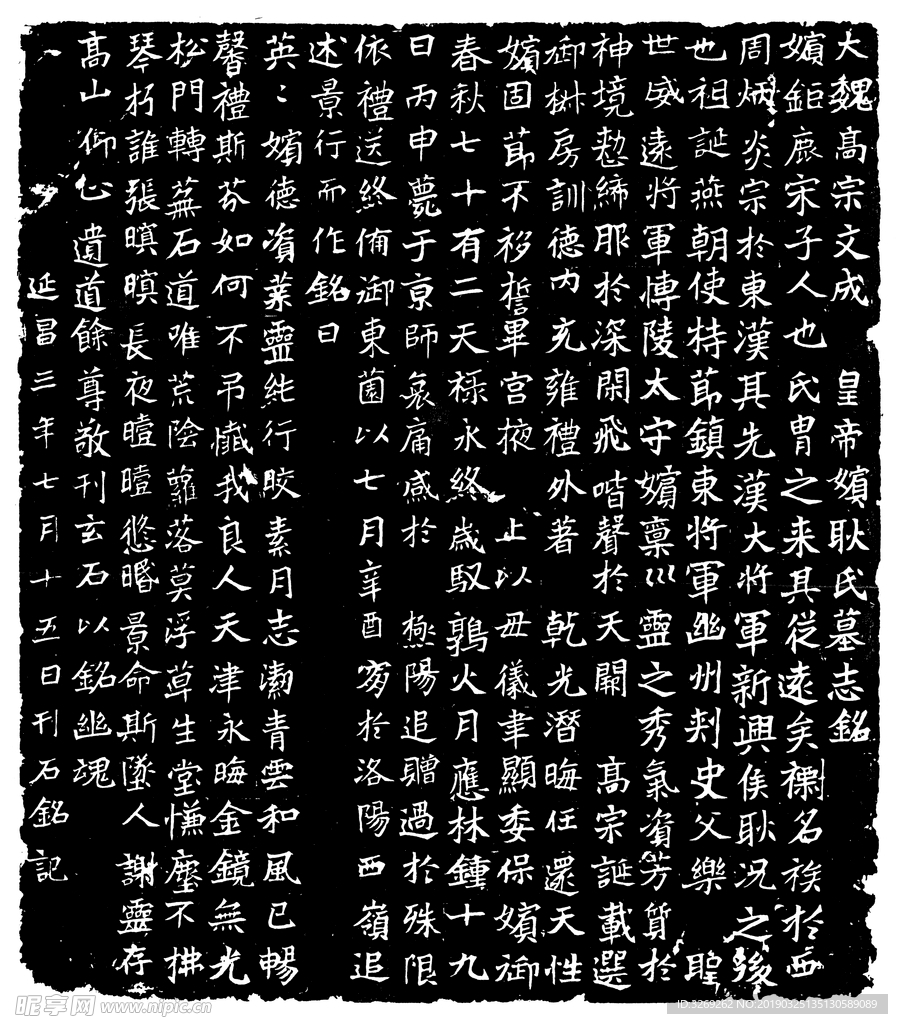 大魏髙宗文成 皇帝嬪耿氏墓志銘
嬪鉅鹿宋子人也氏胄之来其從遠矣欁名族於西
周炳炎宗於東漢其先漢大将軍新興侯耿況之後
也祖誕燕朝使特莭鎮東将軍幽州刾史父樂 聖
世威遠将軍博陵太守嬪稟巛靈之秀氣資芳質於
神境懃締服於深閑飛喈聲於天闈 髙宗誕載選
御椒房訓德內充雍禮外著 乾光潛晦任還天性
嬪固莭不移誓畢宮掖 上以毋儀聿顯委保嬪御
春秋七十有二天禄永終嵗馭鶉火月應林鍾十九
日丙申薨于京師哀痛感於 極陽追贈過於殊限
依禮送終備御東薗以七月辛酉窆於洛陽西嶺追
述景行而作銘曰
英〻嬪德資葉靈純行皎素月志潔青雲和風已暢
馨禮斯芬如何不吊懺我良人天津永晦金鏡無光
松門轉蕪石道唯荒陰蘿落莫浮草生堂慊塵不拂
琴朽誰張暝暝長夜曀曀悠昏景命斯墜人謝靈存
髙山仰止遺道餘尊敬刊玄石以銘幽魂
延昌三年七月十五日刊石銘記
昵享网 www.nipic.cn
ID:3269262 NO:20190325135130589089